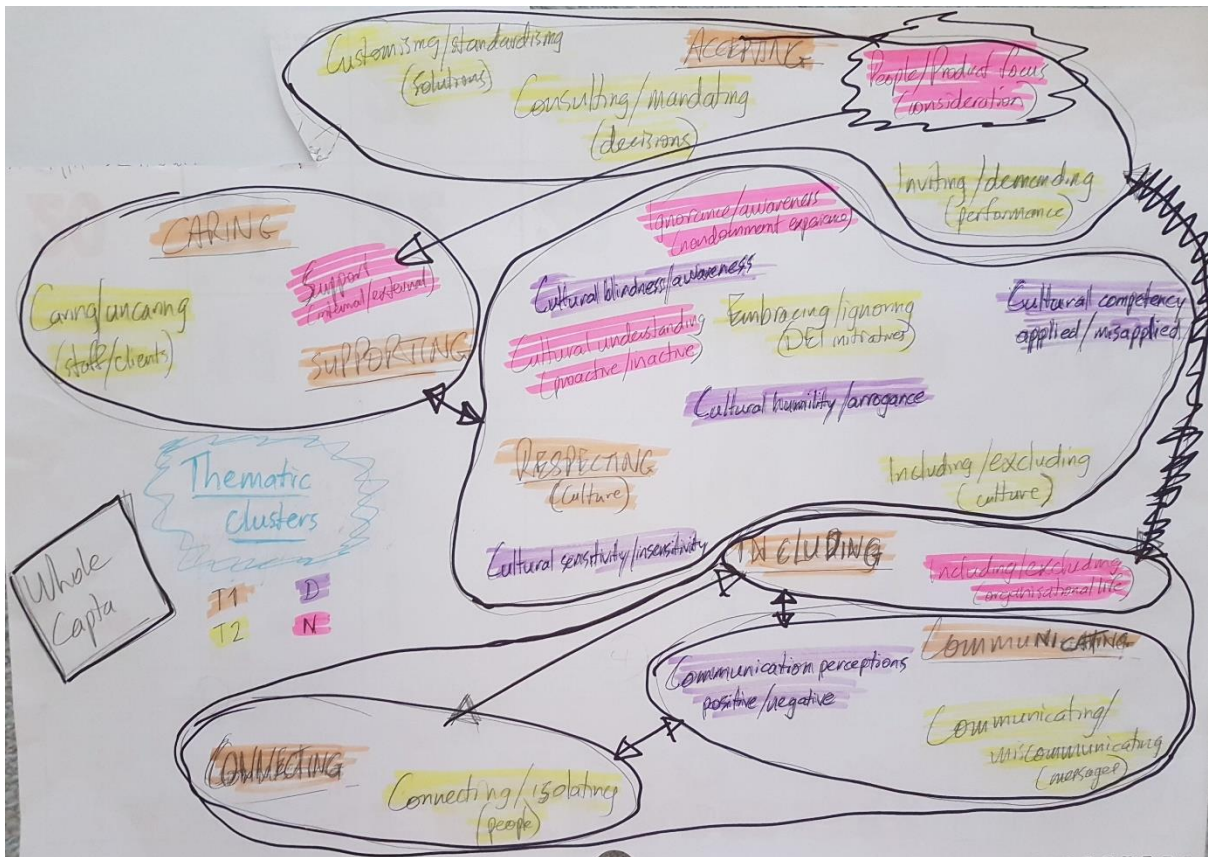 Customising/standardising
(solutions)
ACCEPTING
Consulting/mandating
(decisions)
People/Product focus
(consideration)
Inviting/demanding
(performance)
CARING
Support
(internal/external)
Caring/uncaring
(staff/clients)
SUPPORTING
Ignorance/awareness
(nondominant experience)
Cultural blindness/awareness
Cultural understanding
(proactive/inactive)
Embracing/ignoring
(DEI initiatives)
Cultural competency
applied/misapplied
Cultural humility/arrogance
RESPECTING
(culture)
Including/excluding
(culture)
Cultural sensitivity/insensitivity
Thematic
clusters
T1 D
T2 N
Whole
Capta
INCLUDING
Including/excluding
(organisational life)
COMMUNICATING
Communication perceptions
positive/negative
Communicating/
miscommunicating
(messages)
CONNECTING
Connecting/isolating
(people)